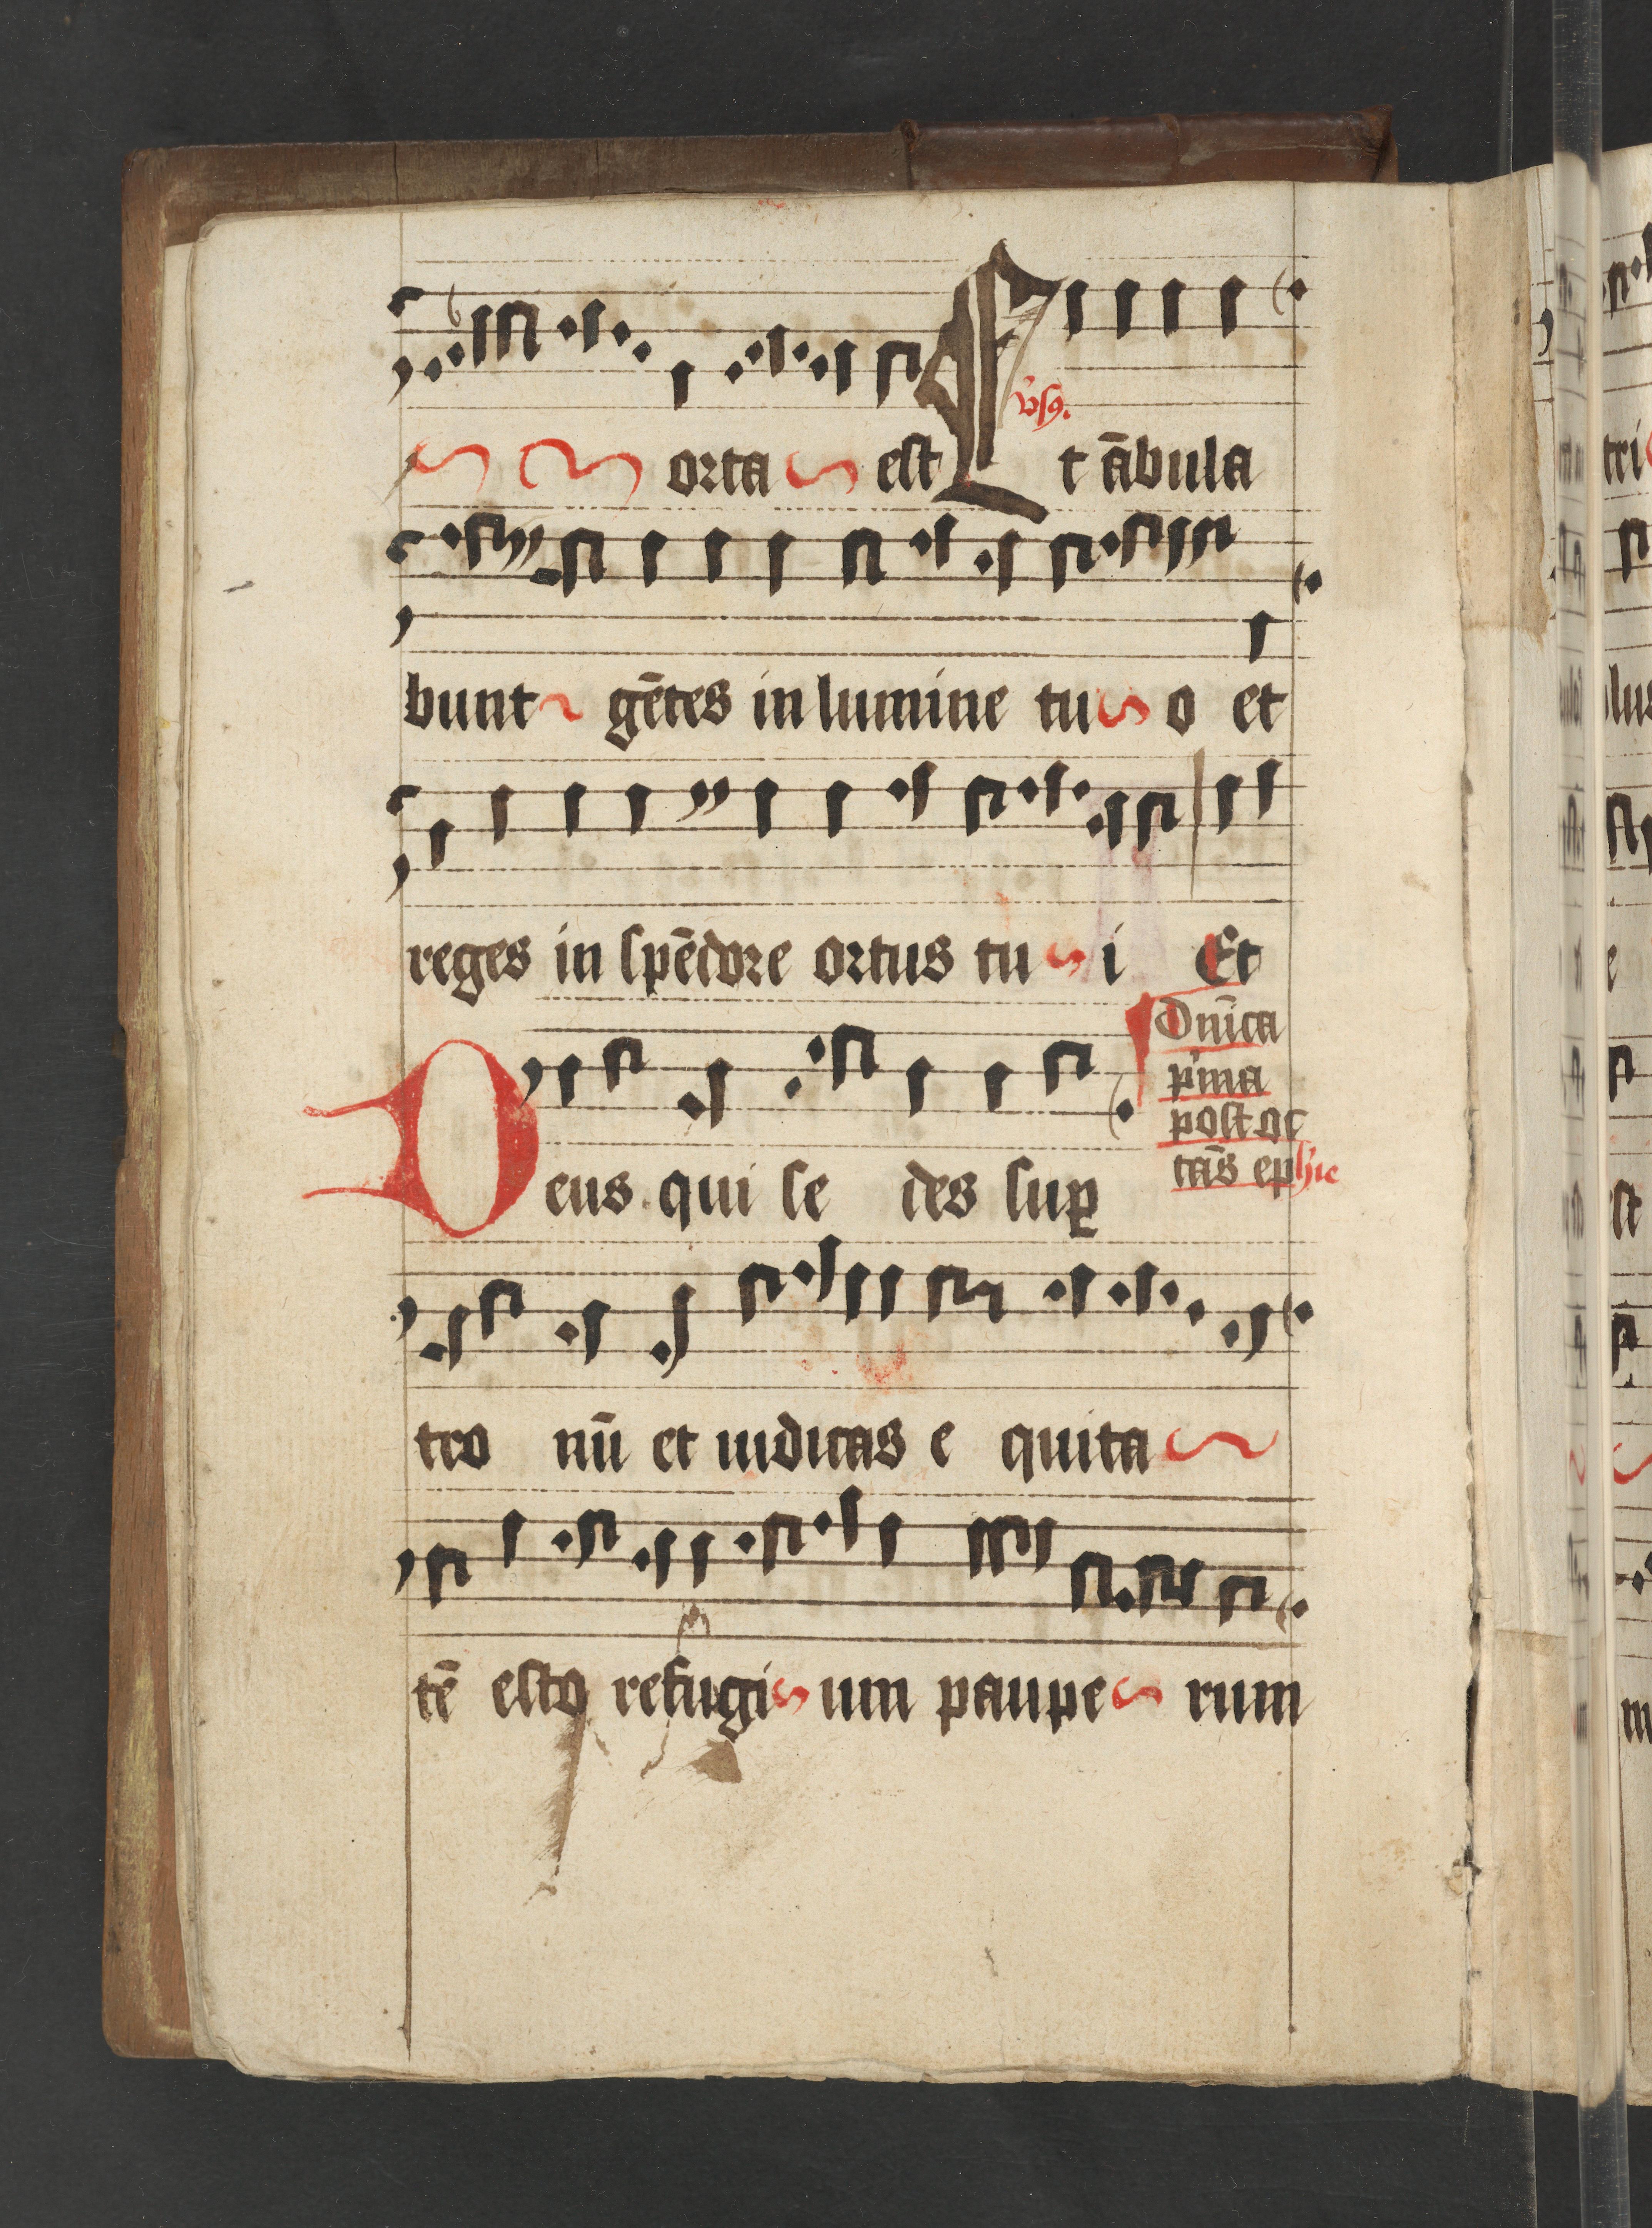 orta est vs9. Et ābula
bunt gētes in lumine tu o et
reges in spēdore ortus tu i Et
Dnīca
p'ma
post oc
tās ephie
Deus qui se des suꝑ
tro nū et iudicas e quita
tē esto refugi um pauꝑe rum